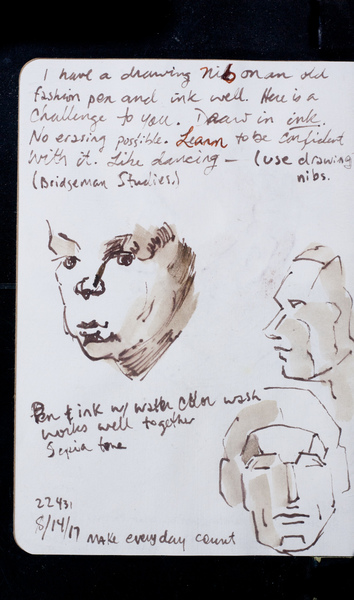 I have a drawing nib on an old
fashion pen and ink well. Here is a
challenge to you. Draw in ink.
No erasing possible. Learn to be confident
with it. Like dancing - (use drawing
(Bridgeman Studies.) nibs.
Pen & ink w/ water color wash
works well together
Sepia tone
22431
8/14/17 make everyday count